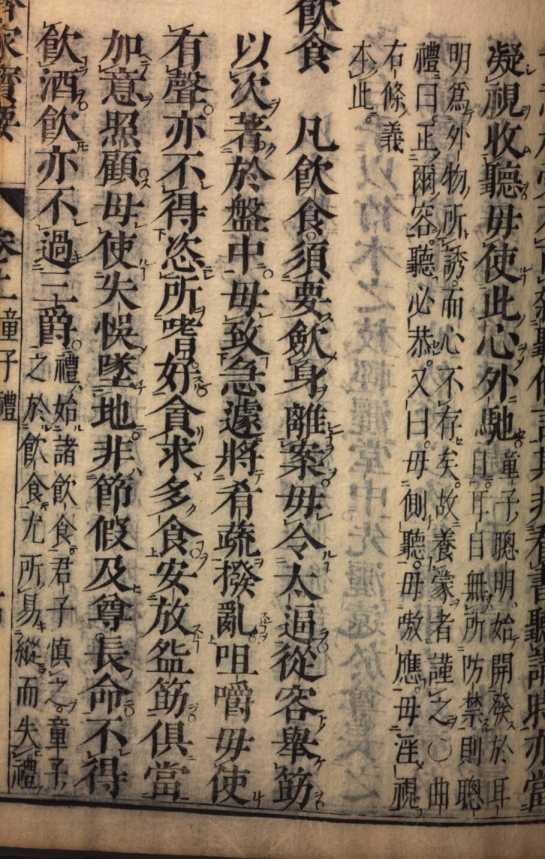 看書聽講時亦當
凝視收聽毋使此心外馳
童子聰明始開發於耳
目耳目無所防禁則聰
明為外物所誘而心不存矣故養蒙者謹之○曲
禮曰正爾容聽必恭又曰毋側聽毋噭應毋淫視
右條義
本此
飲食 凡飲食須要歛身離案毋令太逼從容舉筯
以次著於盤中毋致急遽將肴蔬撥亂咀嚼毋使
有聲亦不得恣所嗜好貪求多食安放盌筯俱當
加意照顧毋使失悞墜地非節假及尊長命不得
飲酒飲亦不過三爵
禮始諸飲食君子慎之童子
之於飲食尤所易縱而失禮
家寶要 卷上 童子禮